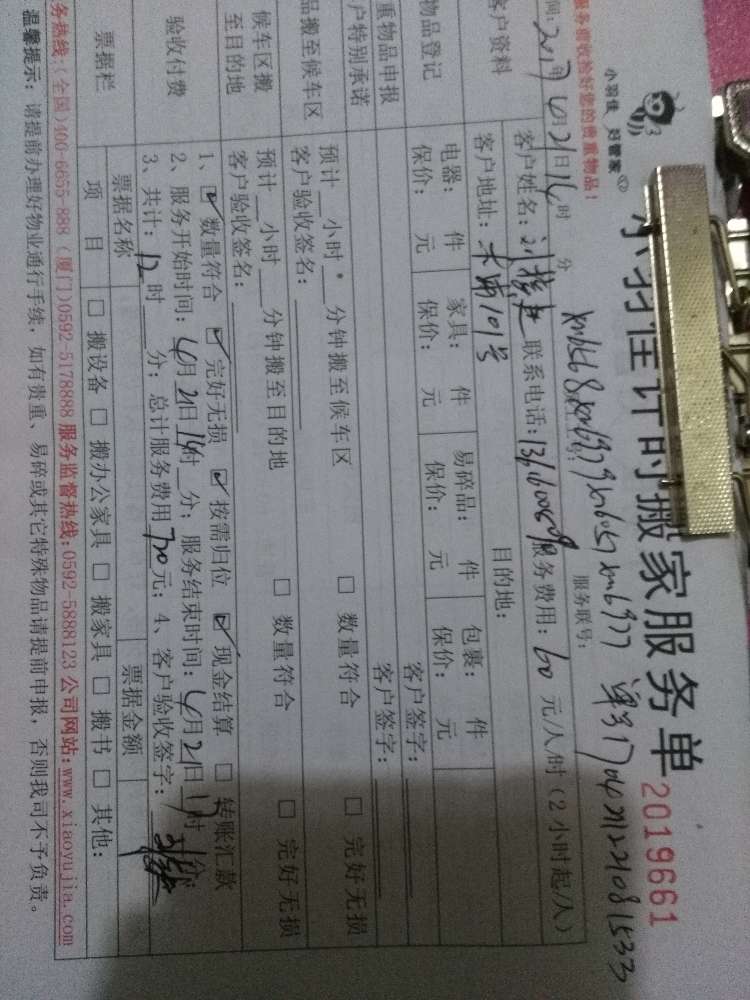 小羽佳 好管家
小羽佳计时搬家服务单 2019661
服务前收拾好您的贵重物品!
xmb568 xmb979 xmb057 xmb977 单号170421221081533
服务联号:
间: 2017年4月21日14时 分
客户资料
客户姓名: 联系电话: 服务费用: 60 元/人/时 (2小时起/人)
客户地址: 101号 目的地:
物品登记
电器: 件 家具: 件 易碎品: 件 包裹: 件
保价: 元 保价: 元 保价: 元 保价: 元
客户签字:
重物品申报
户特别承诺
客户签字:
品搬至候车区
预计 小时 分钟搬至候车区 □ 数量符合 □ 完好无损
客户验收签名:
候车区搬
至目的地
预计 小时 分钟搬至目的地 □ 数量符合 □ 完好无损
客户验收签名:
验收付费
1、☑ 数量符合 ☑ 完好无损 ☑ 按需归位 ☑ 现金结算 □ 转账汇款
2、服务开始时间: 4月21日14时 分; 服务结束时间: 4月21日17时 分
3、共计: 12时 分; 总计服务费用 720元; 4、客户验收签字:
票据栏
票据名称 票据金额
项 目 □ 搬设备 □ 搬办公家具 □ 搬家具 □ 搬书 □ 其他:
务热线:(全国)400-6655-888 (厦门)0592-5178888 服务监督热线:0592-5888123 公司网站:www.xiaoyujia.com
温馨提示: 请提前办理好物业通行手续, 如有贵重、易碎或其它特殊物品请提前申报, 否则我司不予负责。